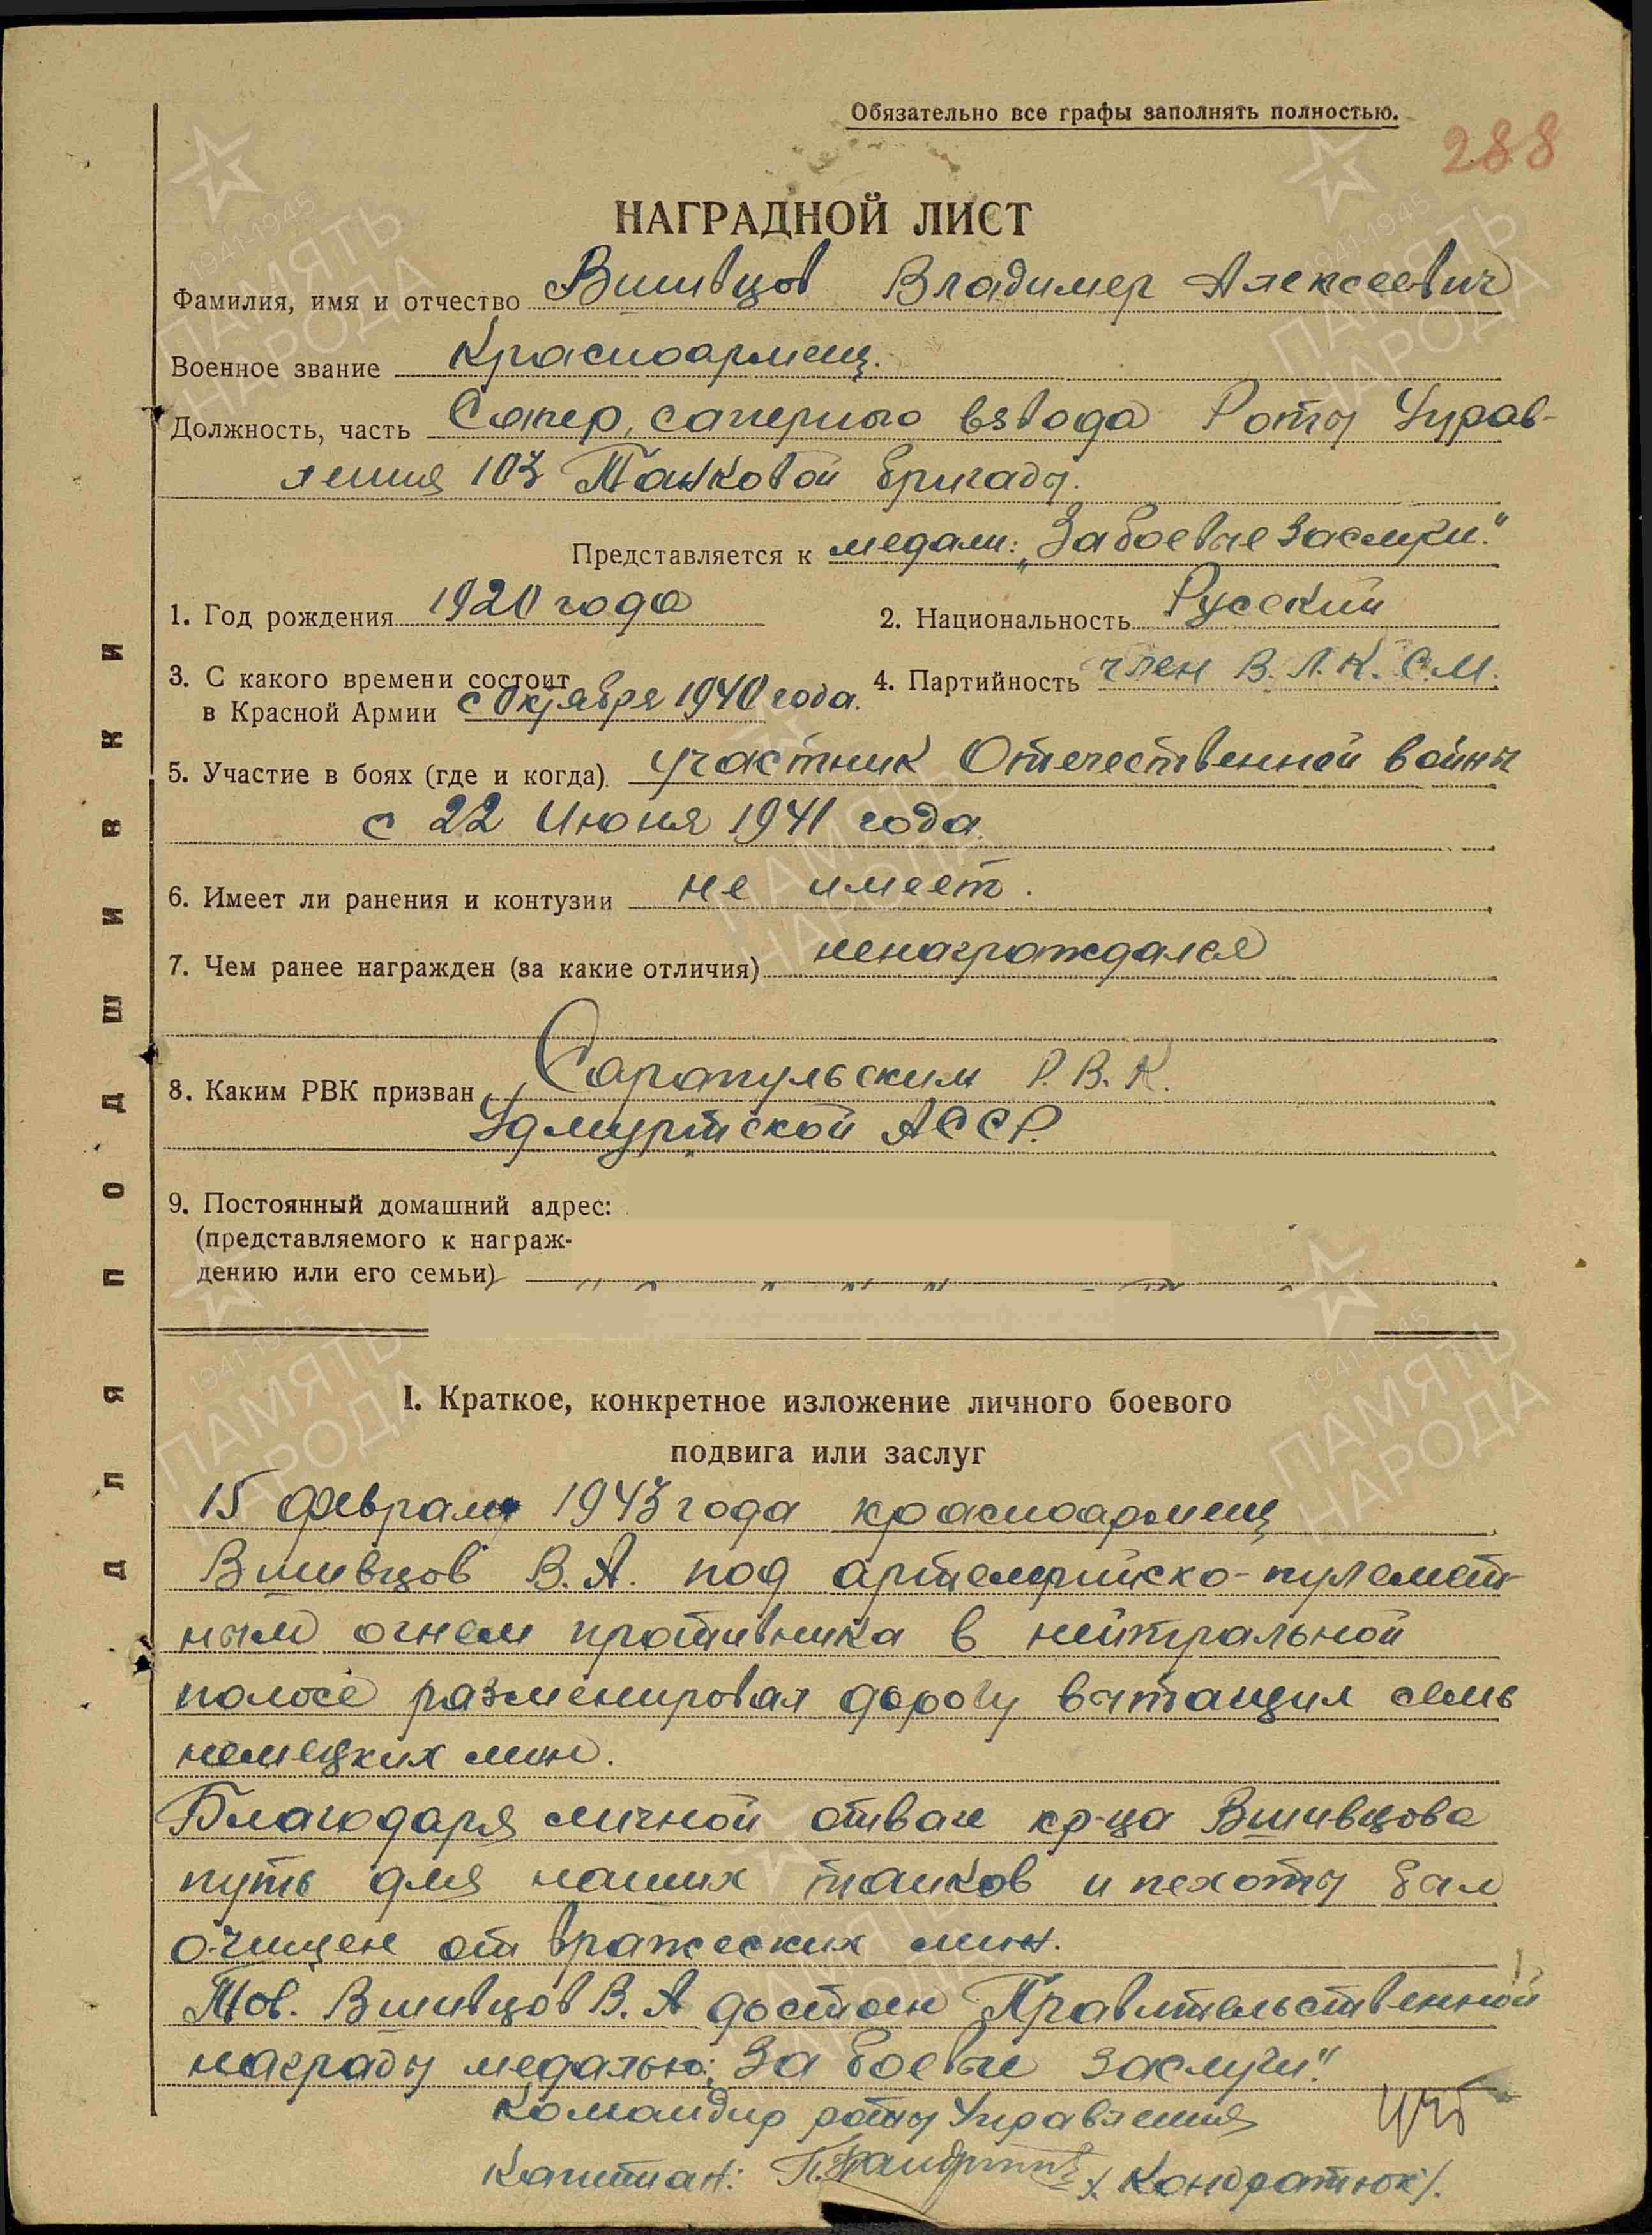 Обязательно все графы заполнять полностью.
288
НАГРАДНОЙ ЛИСТ
Фамилия, имя и отчество Вшивцов Владимер Алексеевич
Военное звание Красноармеец.
Должность, часть Сапер, саперного взвода Роты Управ-
ления 103 Танковой бригады.
Представляется к медали: „За боевые заслуги."
1. Год рождения 1920 года 2. Национальность Русский
3. С какого времени состоит
в Красной Армии с Октября 1940 года. 4. Партийность член В.Л.К.С.М.
5. Участие в боях (где и когда) участник Отечественной войны
с 22 Июня 1941 года.
6. Имеет ли ранения и контузии не имеет.
7. Чем ранее награжден (за какие отличия) ненаграждался
8. Каким РВК призван Сарапульским Р.В.К.
Удмуртской АССР.
9. Постоянный домашний адрес:
(представляемого к награж-
дению или его семьи)
I. Краткое, конкретное изложение личного боевого
подвига или заслуг
15 февраля 1943 года красноармеец
Вшивцов В.А. под артелерийско-пулемет-
ным огнем противника в нейтральной
полосе разменировал дорогу вытащил семь
немецких мин.
Благодаря личной отваге кр-ца Вшивцова
путь для наших танков и пехоты был
очищен от вражеских мин.
Тов. Вшивцов В.А достоен Правительственной
награды медалью: За боевые заслуги."
Командир роты Управления
Капитан: /Кондратюк/.
ДЛЯ ПОДШИВКИ
ПАМЯТЬ НАРОДА
1941-1945